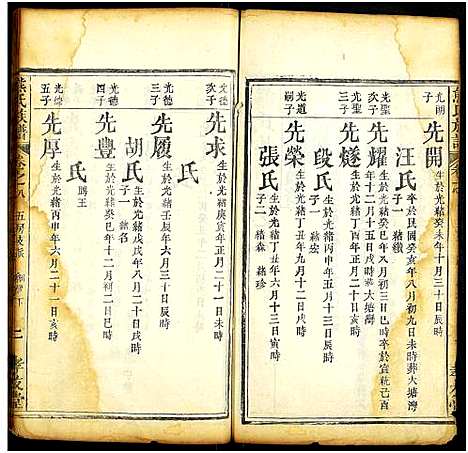 熊氏族譜
光朗
子
先開
生於光緒癸未年十月三十日辰時
汪氏
卒於民國癸亥年八月初九日未時葬大塘灣
子一 緒
光聖
長子
先耀
生於光緒癸巳年八月初三日巳時
光聖
次子
先燧
生於光緒丁酉年正月二十六日
段氏
生於光緒丙申年五月十三日辰時
子一 緒宏
光道
嗣子
先榮
生於光緒丁丑年九月十二日戌時
張氏
生於光緒 年六月十三日寅時
子二 緒森 緒珍
光德
次子
先求
生於光緒庚寅年二月二十一日未時
氏
光德
三子
先履
生於光緒壬辰年六月三十日辰時
胡氏
生於光緒戊戌年八月二十日戌時
子一 緒名
光德
四子
先豐
生於光緒癸巳年十二月初二日巳時
氏
光德
五子
先厚
生於光緒丙申年六月二十一日亥時
熊氏族譜
卷之八
五房
二
孝友堂